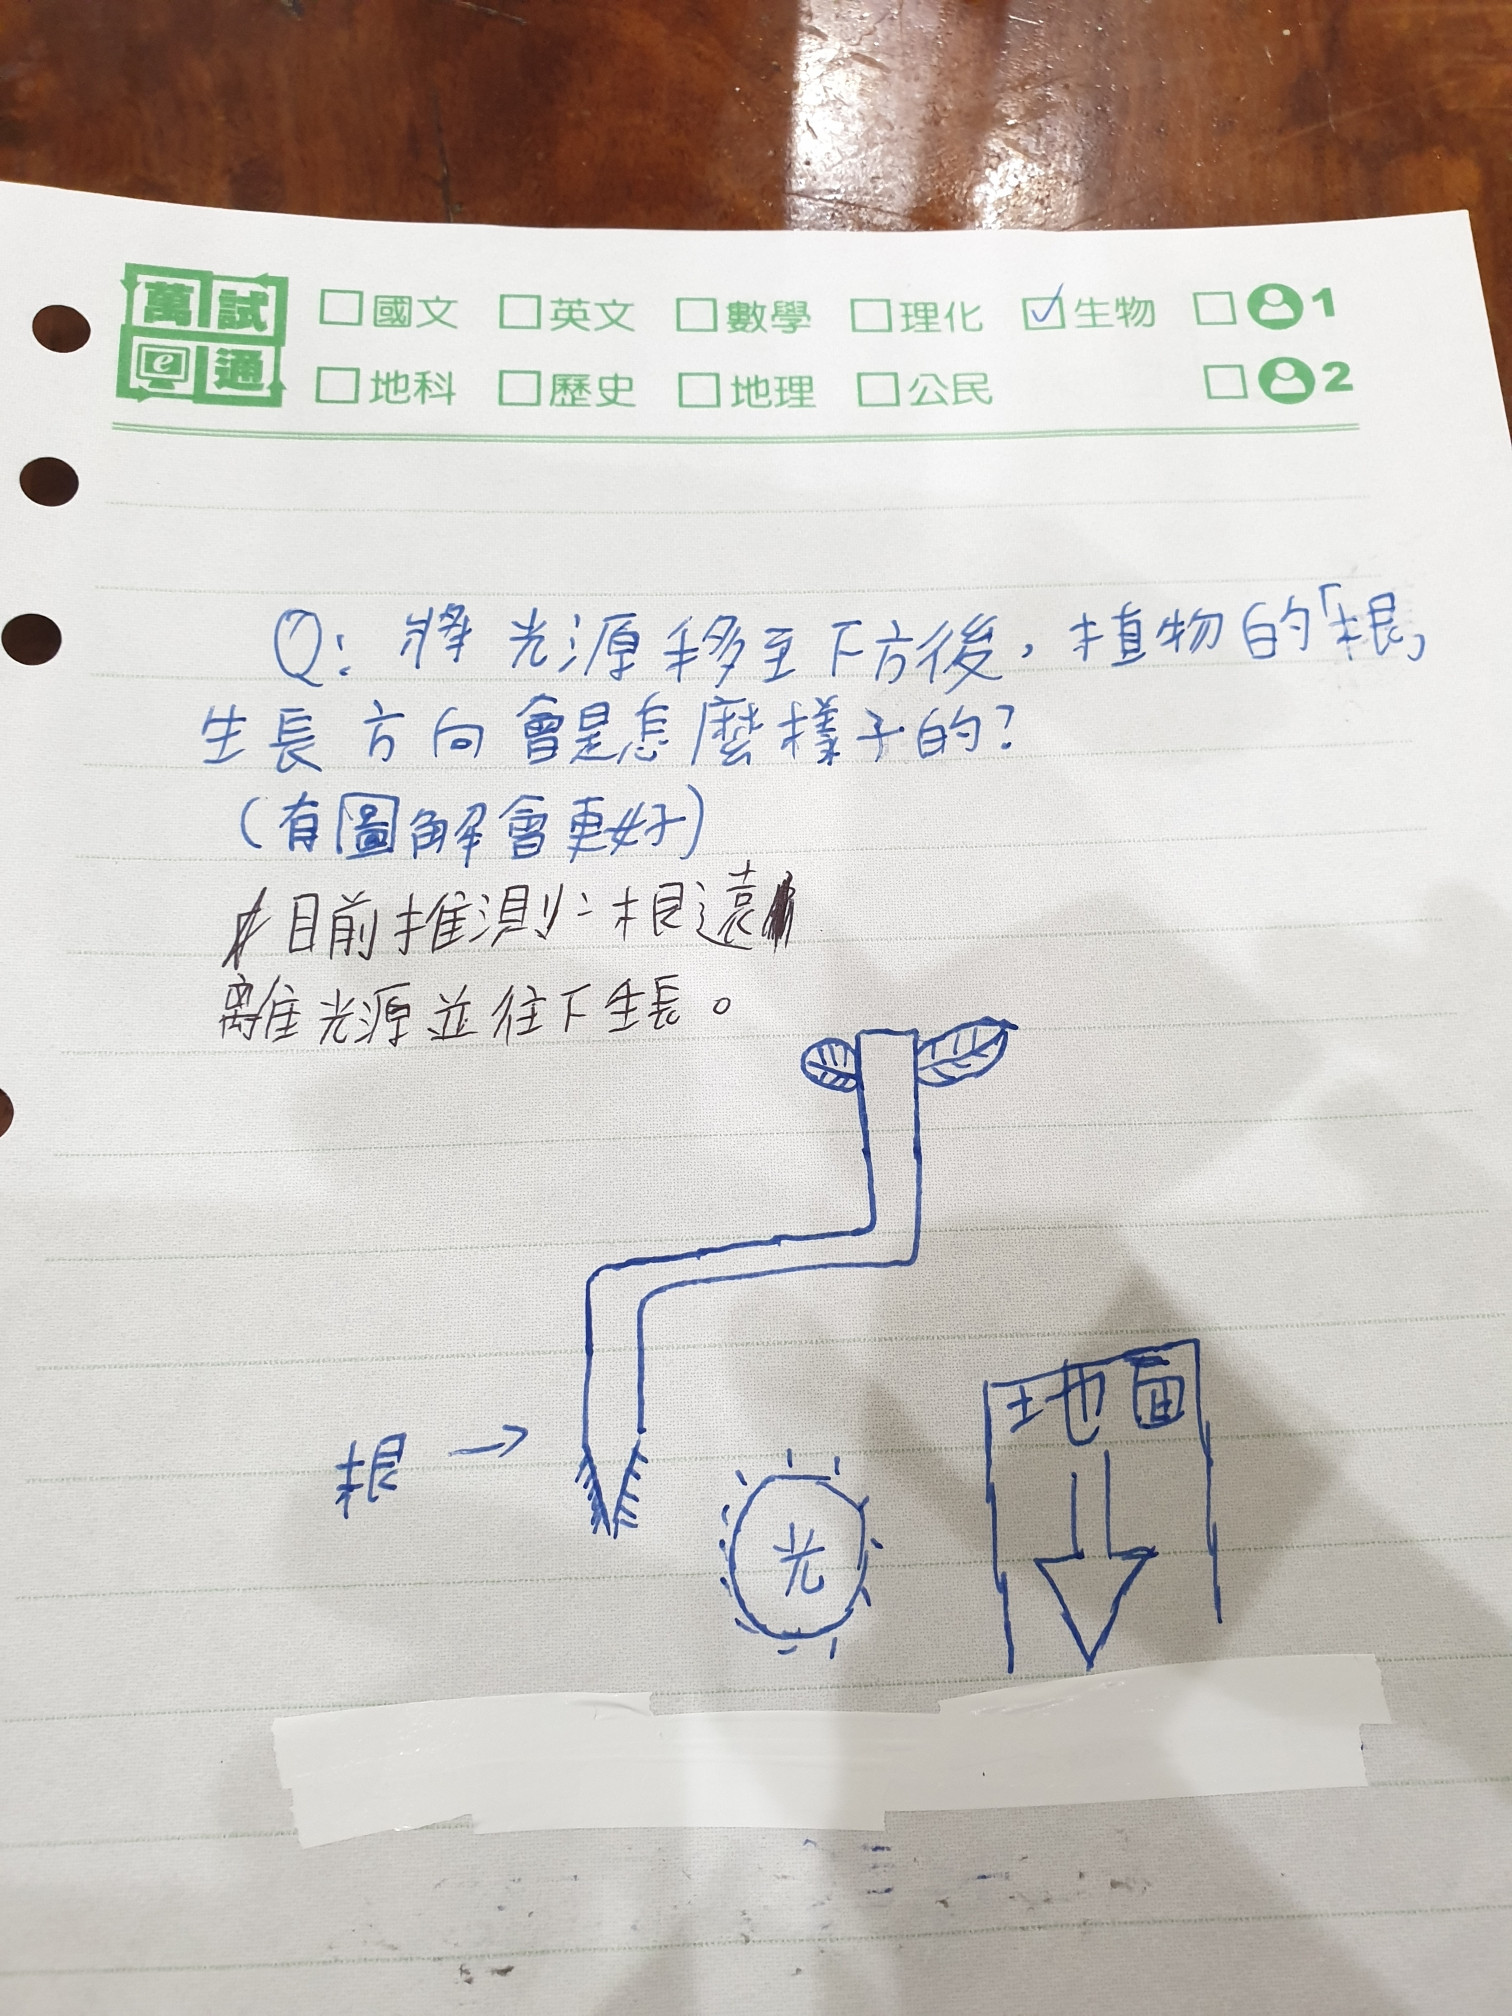 萬試e通
國文 英文 數學 理化 生物 1
地科 歷史 地理 公民 2
Q: 將光源移至下方後，植物的「根」
生長方向會是怎麼樣子的?
(有圖解會更好)
目前推測：根遠
離光源並往下生長。
地面
根
光